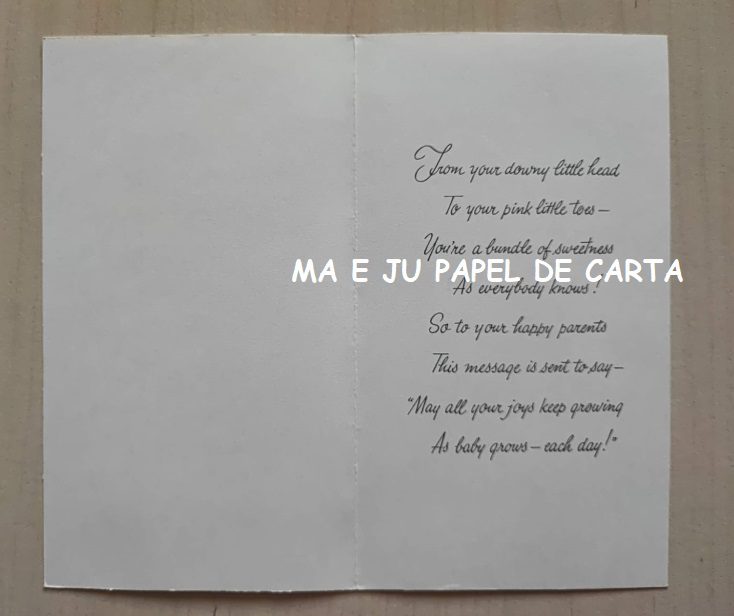 From your downy little head
To your pink little toes—
You're a bundle of sweetness
MA E JU PAPEL DE CARTA
As everybody knows!
So to your happy parents
This message is sent to say—
"May all your joys keep growing
As baby grows—each day!"